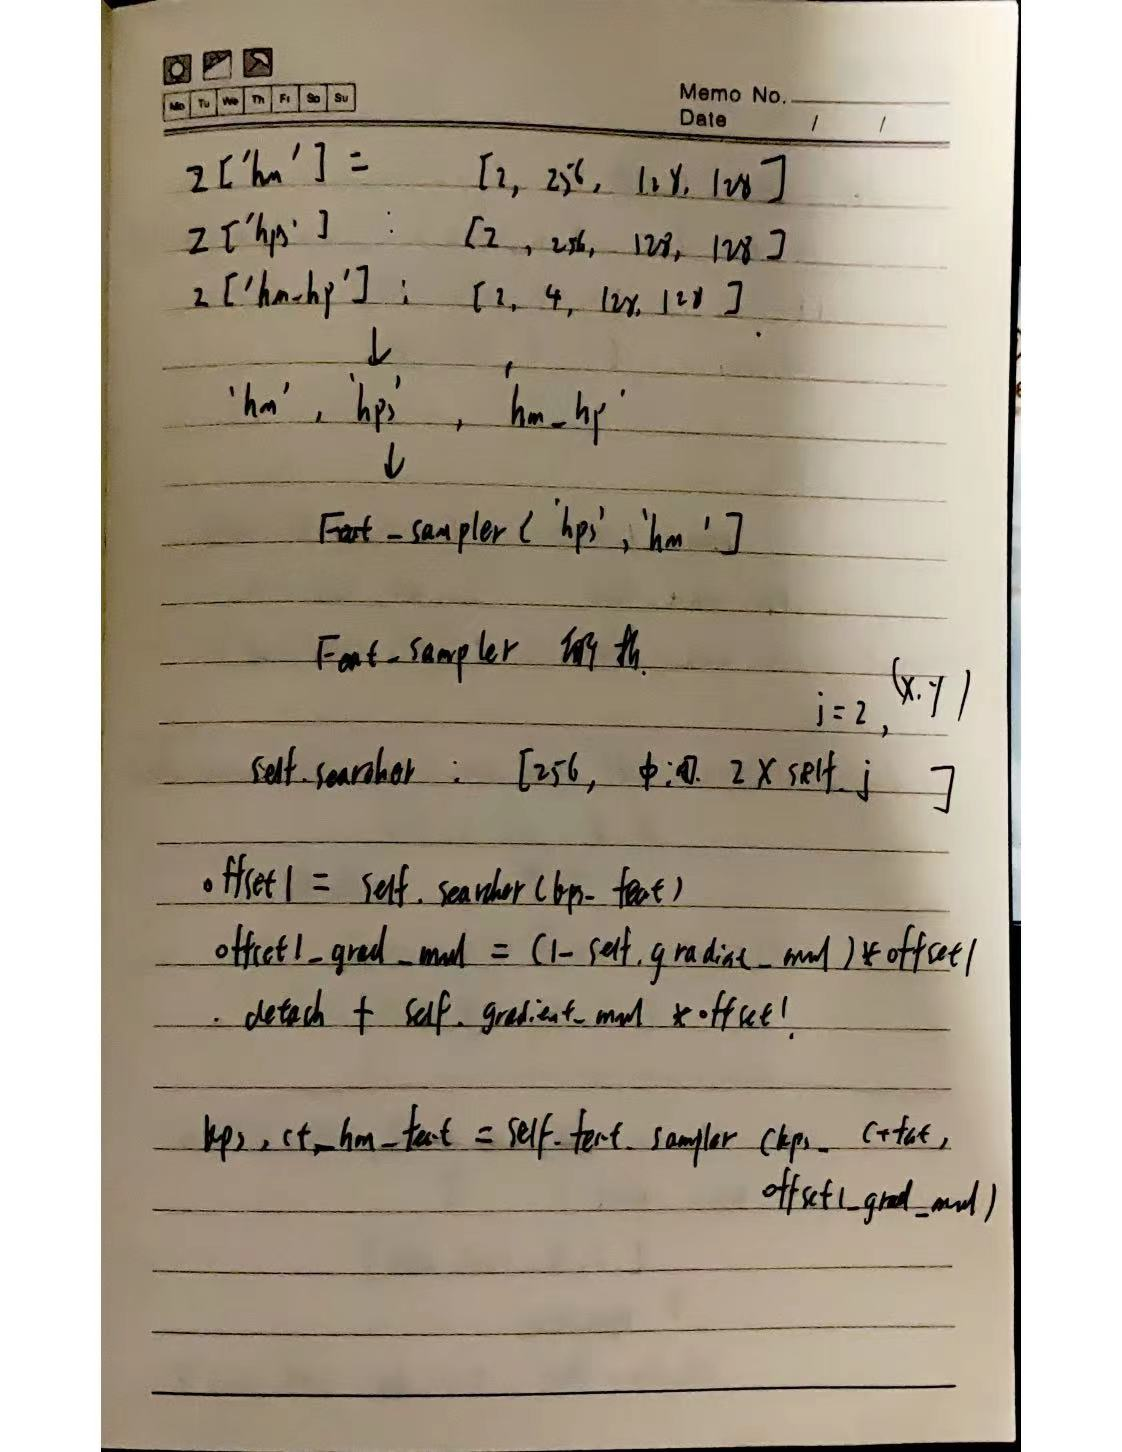 Mo Tu We Th Fr Sa Su
Memo No.
Date / /
z['hm'] = [2, 256, 128, 128]
z['hps'] : [2, 256, 128, 128]
z['hm-hp'] : [2, 4, 128, 128]
↓
'hm', 'hps', 'hm_hp'
↓
Feat_sampler('hps', 'hm']
Feat_sampler
j=2, (x.y)
self.searcher : [256, 中间. 2X self.j ]
offset1 = self.searcher(kps_feat)
offset1_grad_mul = (1-self.gradient_mul)*offset1
.detach + self.gradient_mul *offset1.
kps, ct_hm_feat = self.feat_sampler (kps_ct feat,
offset1_grad_mul)